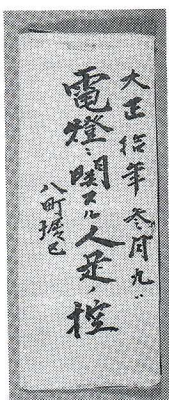 大正拾年参月九日
電燈ニ関スル人足ノ控
八町